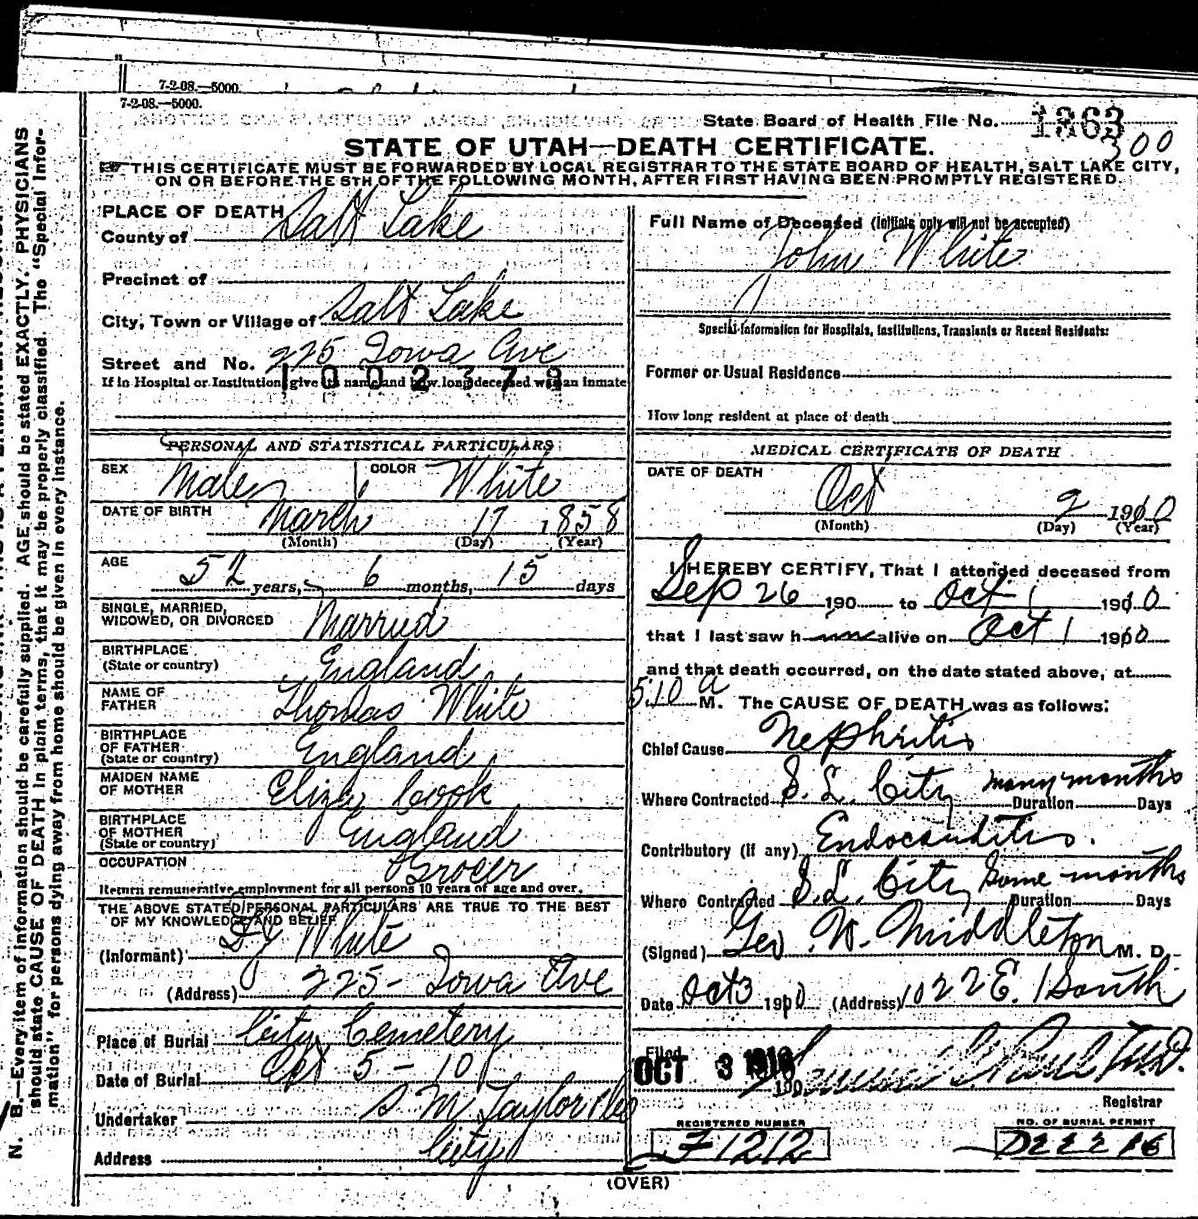 7-2-08.—5000.
7-2-08.—5000.
State Board of Health File No. 1363
300
STATE OF UTAH—DEATH CERTIFICATE.
THIS CERTIFICATE MUST BE FORWARDED BY LOCAL REGISTRAR TO THE STATE BOARD OF HEALTH, SALT LAKE CITY,
ON OR BEFORE THE 5TH OF THE FOLLOWING MONTH, AFTER FIRST HAVING BEEN PROMPTLY REGISTERED.
PLACE OF DEATH
County of Salt Lake
Precinct of
City, Town or Village of Salt Lake
Street and No. 225 Iowa Ave
1002379
If in Hospital or Institution, give its name and how long deceased was an inmate
PERSONAL AND STATISTICAL PARTICULARS
SEX Male COLOR White
DATE OF BIRTH March 17, 1858
(Month) (Day) (Year)
AGE 52 years, 6 months, 15 days
SINGLE, MARRIED,
WIDOWED, OR DIVORCED Married
BIRTHPLACE
(State or country) England
NAME OF
FATHER Thomas White
BIRTHPLACE
OF FATHER
(State or country) England
MAIDEN NAME
OF MOTHER Eliza Cook
BIRTHPLACE
OF MOTHER
(State or country) England
OCCUPATION Grocer
Return remunerative employment for all persons 10 years of age and over.
THE ABOVE STATED PERSONAL PARTICULARS ARE TRUE TO THE BEST
OF MY KNOWLEDGE AND BELIEF
(Informant) White
(Address) 225- Iowa Ave
Place of Burial City Cemetery
Date of Burial Oct 5 - 10
Undertaker S M Taylor
Address City
Full Name of Deceased (Initials only will not be accepted)
John White
Special Information for Hospitals, Institutions, Transients or Recent Residents:
Former or Usual Residence
How long resident at place of death
MEDICAL CERTIFICATE OF DEATH
DATE OF DEATH Oct 2 1910
(Month) (Day) (Year)
I HEREBY CERTIFY, That I attended deceased from
Sep 26 190 to Oct 1 1910
that I last saw h im alive on Oct 1 1910
and that death occurred, on the date stated above, at
5.10 a M. The CAUSE OF DEATH was as follows:
Chief Cause Nephritis
Where Contracted S. L. City Duration many months Days
Contributory (if any) Endocarditis.
Where Contracted S. L. City Duration Some months Days
(Signed) Geo. W. Middleton M. D.
Date Oct 3 1910 (Address) 1022 E. 1 South
Filed OCT 3 1910 190
Registrar
REGISTERED NUMBER
F1212
NO. OF BURIAL PERMIT
(OVER)
N. B.—Every item of information should be carefully supplied. AGE should be stated EXACTLY. PHYSICIANS
should state CAUSE OF DEATH in plain terms, that it may be properly classified. The "Special Infor-
mation" for persons dying away from home should be given in every instance.